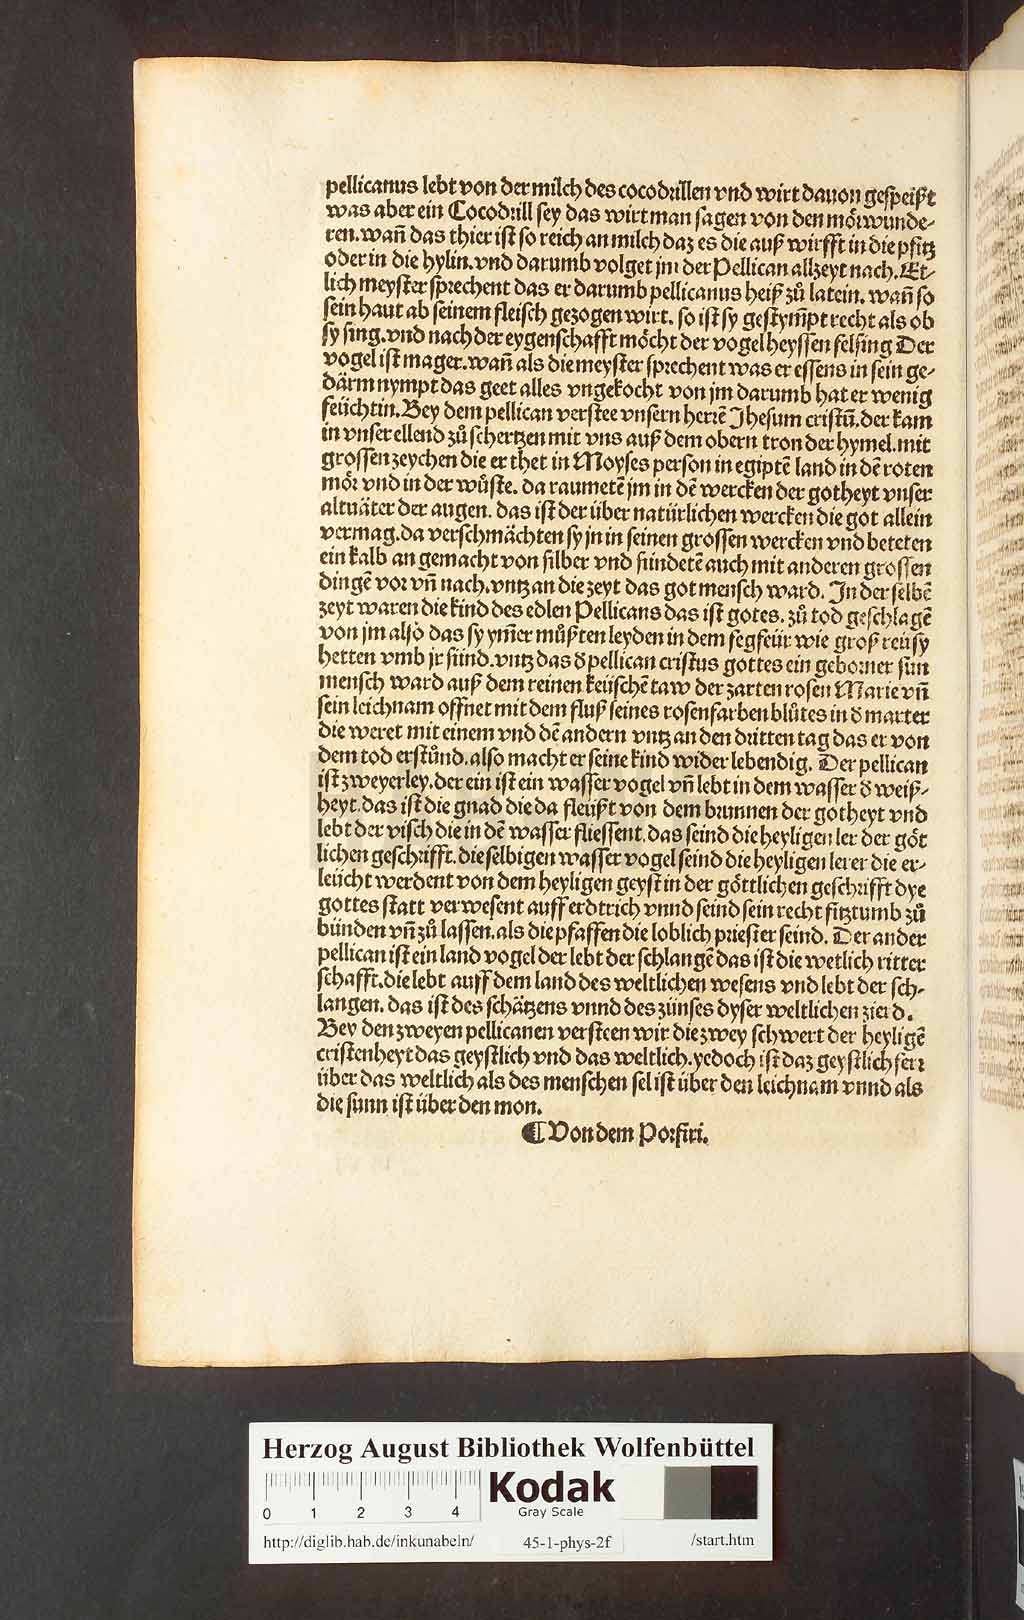 pellicanus lebt von der milch des cocodrillen vnd wirt dauon gespeißt
was aber ein Cocodrill sey das wirt man sagen von den mörwunde-
ren. wañ das thier ist so reich an milch daz es die auß wirfft in die pfitz
oder in die hylin. vnd darumb volget jm der Pellican allzeyt nach. Et-
lich meyster sprechent das er darumb pellicanus heiß zů latein. wañ so
sein haut ab seinem fleisch gezogen wirt. so ist sy gestym̃pt recht als ob
sy sing. vnd nach der eygenschafft möcht der vogel heyssen felsing Der
vogel ist mager. wañ als die meyster sprechent was er essens in sein ge-
därm nympt das geet alles vngekocht von jm darumb hat er wenig
feüchtin. Bey dem pellican verstee vnsern herrẽ Jhesum cristũ. der kam
in vnser ellend zů schertzen mit vns auß dem obern tron der hymel. mit
grossen zeychen die er thet in Moyses person in egiptẽ land in dẽ roten
mör vnd in der wůste. da raumetẽ jm in dẽ wercken der gotheyt vnser
altuäter der augen. das ist der über natürlichen wercken die got allein
vermag. da verschmächten sy jn in seinen grossen wercken vnd beteten
ein kalb an gemacht von silber vnd sündetẽ auch mit anderen grossen
dingẽ vor vñ nach. vntz an die zeyt das got mensch ward. In der selbẽ
zeyt waren die kind des edlen Pellicans das ist gotes. zů tod geschlagẽ
von jm also das sy ym̃er můßten leyden in dem segfeür wie groß reü sy
hetten vmb jr sünd. vntz das ď pellican cristus gottes ein geborner sun
mensch ward auß dem reinen keüschẽ taw der zarten rosen Marie vñ
sein leichnam offnet mit dem fluß seines rosenfarben blůtes in ď marter
die weret mit einem vnd dẽ andern vntz an den dritten tag das er von
dem tod erstůnd. also macht er seine kind wider lebendig. Der pellican
ist zweyerley. der ein ist ein wasser vogel vñ lebt in dem wasser ď weiß-
heyt. das ist die gnad die da fleüßt von dem brunnen der gotheyt vnd
lebt der visch die in dẽ wasser fliessent. das seind die heyligen ler der göt
lichen geschrifft. die selbigen wasser vogel seind die heyligen lerer die er-
leücht werdent von dem heyligen geyst in der göttlichen geschrifft dye
gottes statt verwesent auff erdtrich vnnd seind sein recht fitztumb zů
bünden vñ zů lassen. als die pfaffen die loblich priester seind. Der ander
pellican ist ein land vogel der lebt der schlangẽ das ist die wetlich ritter
schafft. die lebt auff dem land des weltlichen wesens vnd lebt der sch-
langen. das ist des schätzens vnnd des zünses dyser weltlichen zierd.
Bey den zweyen pellicanen versteen wir die zwey schwert der heyligẽ
cristenheyt das geystlich vnd das weltlich. yedoch ist daz geystlich ferr
über das weltlich als des menschen sel ist über den leichnam vnnd als
die sunn ist über den mon.
¶ Von dem Porfiri.
Herzog August Bibliothek Wolfenbüttel
0 1 2 3 4 Kodak
Gray Scale
http://diglib.hab.de/inkunabeln/ 45-1-phys-2f /start.htm